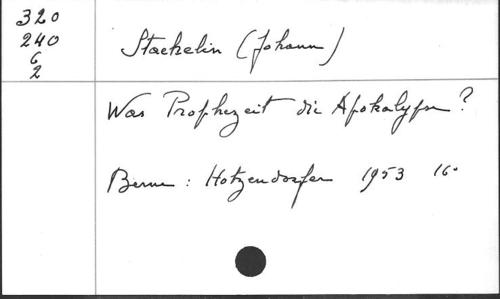 320
240
6
2
Staehelin (Johann)
Was Prophezeit die Apokalypse?
Berne : Hotzendorfer 1953 16°